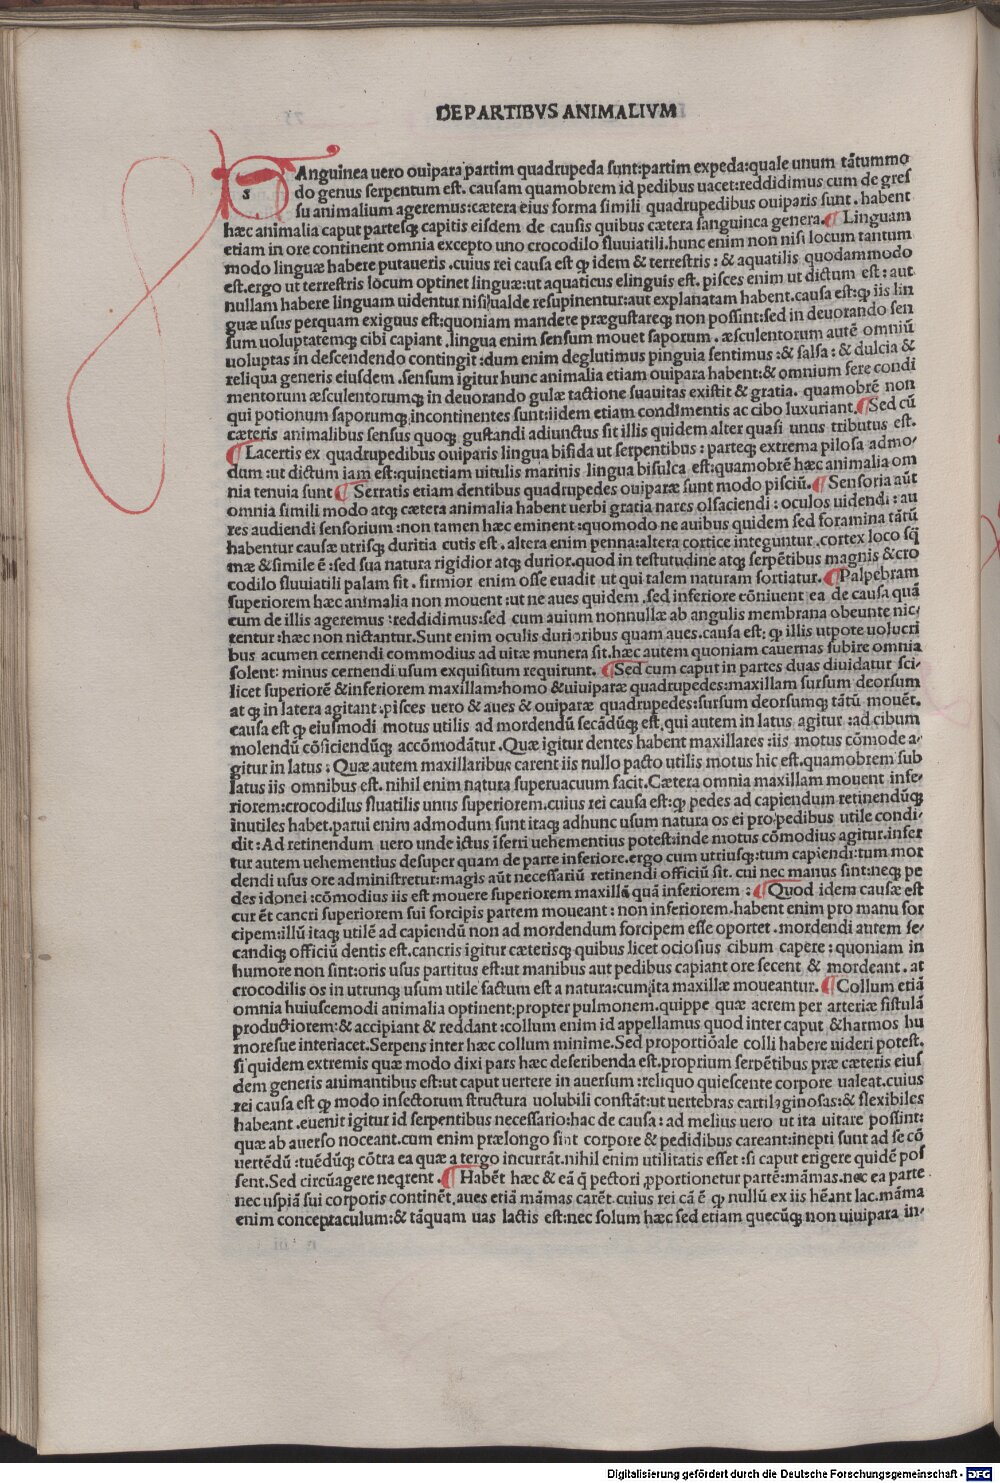 DE PARTIBVS ANIMALIVM
SAnguinea uero ouipara partim quadrupeda sunt:partim expeda:quale unum tãtummo
do genus serpentum est. causam quamobrem id pedibus uacet:reddidimus cum de gres
su animalium ageremus:cætera eius forma simili quadrupedibus ouiparis sunt. habent
hæc animalia caput partesq; capitis eisdem de causis quibus cætera sanguinea genera.¶ Linguam
etiam in ore continent omnia excepto uno crocodilo fluuiatili.hunc enim non nisi locum tantum
modo linguæ habere putaueris .cuius rei causa est ꝙ idem & terrestris : & aquatilis quodammodo
est.ergo ut terrestris locum optinet linguæ:ut aquaticus elinguis est. pisces enim ut dictum est : aut
nullam habere linguam uidentur nisi ualde resupinentur:aut explanatam habent.causa est:ꝙ iis lin
guæ usus perquam exiguus est:quoniam mandere prægustareq; non possint:sed in deuorando sen
sum uoluptatemq; cibi capiant .lingua enim sensum mouet saporum . æsculentorum autẽ omniũ
uoluptas in descendendo contingit :dum enim deglutimus pinguia sentimus :& salsa : & dulcia &
reliqua generis eiusdem .sensum igitur hunc animalia etiam ouipara habent:& omnium fere condi
mentorum æsculentorumq; in deuorando gulæ tactione suauitas existit & gratia. quamobrẽ non
qui potionum saporumq; incontinentes sunt:iidem etiam condimentis ac cibo luxuriant.¶Sed cũ
cæteris animalibus sensus quoq; gustandi adiunctus sit illis quidem alter quasi unus tributus est.
¶ Lacertis ex quadrupedibus ouiparis lingua bifida ut serpentibus : parteq; extrema pilosa admo-
dum :ut dictum iam est:quinetiam uitulis marinis lingua bisulca est:quamobrẽ hæc animalia om
nia tenuia sunt ¶ Serratis etiam dentibus quadrupedes ouiparæ sunt modo pisciũ.¶ Sensoria aũt
omnia simili modo atq; cætera animalia habent uerbi gratia nares olfaciendi : oculos uidendi : au
res audiendi sensorium :non tamen hæc eminent :quomodo ne auibus quidem sed foramina tãtũ
habentur causæ utrisq; duritia cutis est . altera enim penna:altera cortice integuntur .cortex loco sq̃
mæ & simile ẽ :sed sua natura rigidior atq; durior.quod in testutudine atq; serpẽtibus magnis & cro
codilo fluuiatili palam sit . firmior enim osse euadit ut qui talem naturam sortiatur.¶Palpebram
superiorem hæc animalia non mouent :ut ne aues quidem .sed inferiore cõniuent ea de causa quã
cum de illis ageremus :reddidimus:sed cum auium nonnullæ ab angulis membrana obeunte nic-
tentur :hæc non nictantur.Sunt enim oculis durioribus quam aues.causa est: ꝙ illis utpote uolucri
bus acumen cernendi commodius ad uitæ munera sit.hæc autem quoniam cauernas subire omnia
solent: minus cernendi usum exquisitum requirunt. ¶Sed cum caput in partes duas diuidatur sci-
licet superiorẽ &inferiorem maxillam:homo &uiuiparæ quadrupedes:maxillam sursum deorsum
atq; in latera agitant :pisces uero & aues & ouiparæ quadrupedes:sursum deorsumq; tãtũ mouẽt.
causa est ꝙ eiusmodi motus utilis ad mordendũ secãdũq; est.qui autem in latus agitur :ad cibum
molendũ cõficiendũq; accõmodãtur .Quæ igitur dentes habent maxillares :iis motus cõmode a-
gitur in latus : Quæ autem maxillaribus carent iis nullo pacto utilis motus hic est.quamobrem sub
latus iis omnibus est. nihil enim natura superuacuum facit.Cætera omnia maxillam mouent infe-
riorem:crocodilus fluatilis unus superiorem.cuius rei causa est:ꝙ pedes ad capiendum retinendũq;
inutiles habet.parui enim admodum sunt itaq; adhunc usum natura os ei pro pedibus utile condi-
dit : Ad retinendum uero unde ictus iferri uehementius potest:inde motus cõmodius agitur.infer
tur autem uehementius desuper quam de parte inferiore.ergo cum utriusq; :tum capiendi:tum mor
dendi usus ore administretur:magis aũt necessariũ retinendi officiũ sit. cui nec manus sint:neq; pe
des idonei :cõmodius iis est mouere superiorem maxillã quã inferiorem : ¶Quod idem causæ est
cur ẽt cancri superiorem sui forcipis partem moueant : non inferiorem.habent enim pro manu for
cipem:illũ itaq; utilẽ ad capiendũ non ad mordendum forcipem esse oportet .mordendi autem se-
candiq; officiũ dentis est.cancris igitur cæterisq; quibus licet ociosius cibum capere : quoniam in
humore non sint:oris usus partitus est:ut manibus aut pedibus capiant ore secent & mordeant. at
crocodilis os in utrunq; usum utile factum est a natura:cum ita maxillæ moueantur. ¶Collum etiã
omnia huiuscemodi animalia optinent:propter pulmonem.quippe quæ aerem per arteriæ fistulã
productiorem:& accipiant & reddant :collum enim id appellamus quod inter caput & harmos hu
moresue interiacet.Serpens inter hæc collum minime.Sed proportiõale colli habere uideri potest.
si quidem extremis quæ modo dixi pars hæc describenda est.proprium serpẽtibus præ cæteris eius
dem generis animantibus est:ut caput uertere in auersum :reliquo quiescente corpore ualeat.cuius
rei causa est ꝙ modo insectorum structura uolubili constãt:ut uertebras cartilaginosas:& flexibiles
habeant .euenit igitur id serpentibus necessario:hac de causa : ad melius uero ut ita uitare possint:
quæ ab auerso noceant.cum enim prælongo sint corpore & pedidibus careant:inepti sunt ad se cõ
uertẽdũ :tuẽdũq; cõtra ea quæ a tergo incurrãt.nihil enim utilitatis esset :si caput erigere quidẽ pos
sent.Sed circũagere nequent . ¶ Habẽt hæc & eã q̃ pectori ꝓportionetur partẽ:mãmas.nec ea parte
nec uspiã sui corporis continẽt.aues etiã mãmas carẽt.cuius rei cã ẽ ꝙ nullũ ex iis hẽant lac.mãma
enim conceptaculum:& tãquam uas lactis est:nec solum hæc sed etiam quecũq; non uiuipara in-
Digitalisierung gefördert durch die Deutsche Forschungsgemeinschaft - DFG